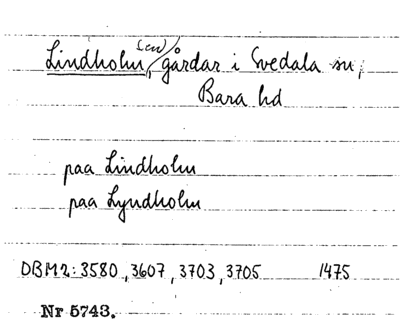 Lindholm, gårdar i Svedala sn,
Bara hd
paa Lindholm
paa Lyndholm
DBM2: 3580, 3607, 3703, 3705 1475
Nr 5743.